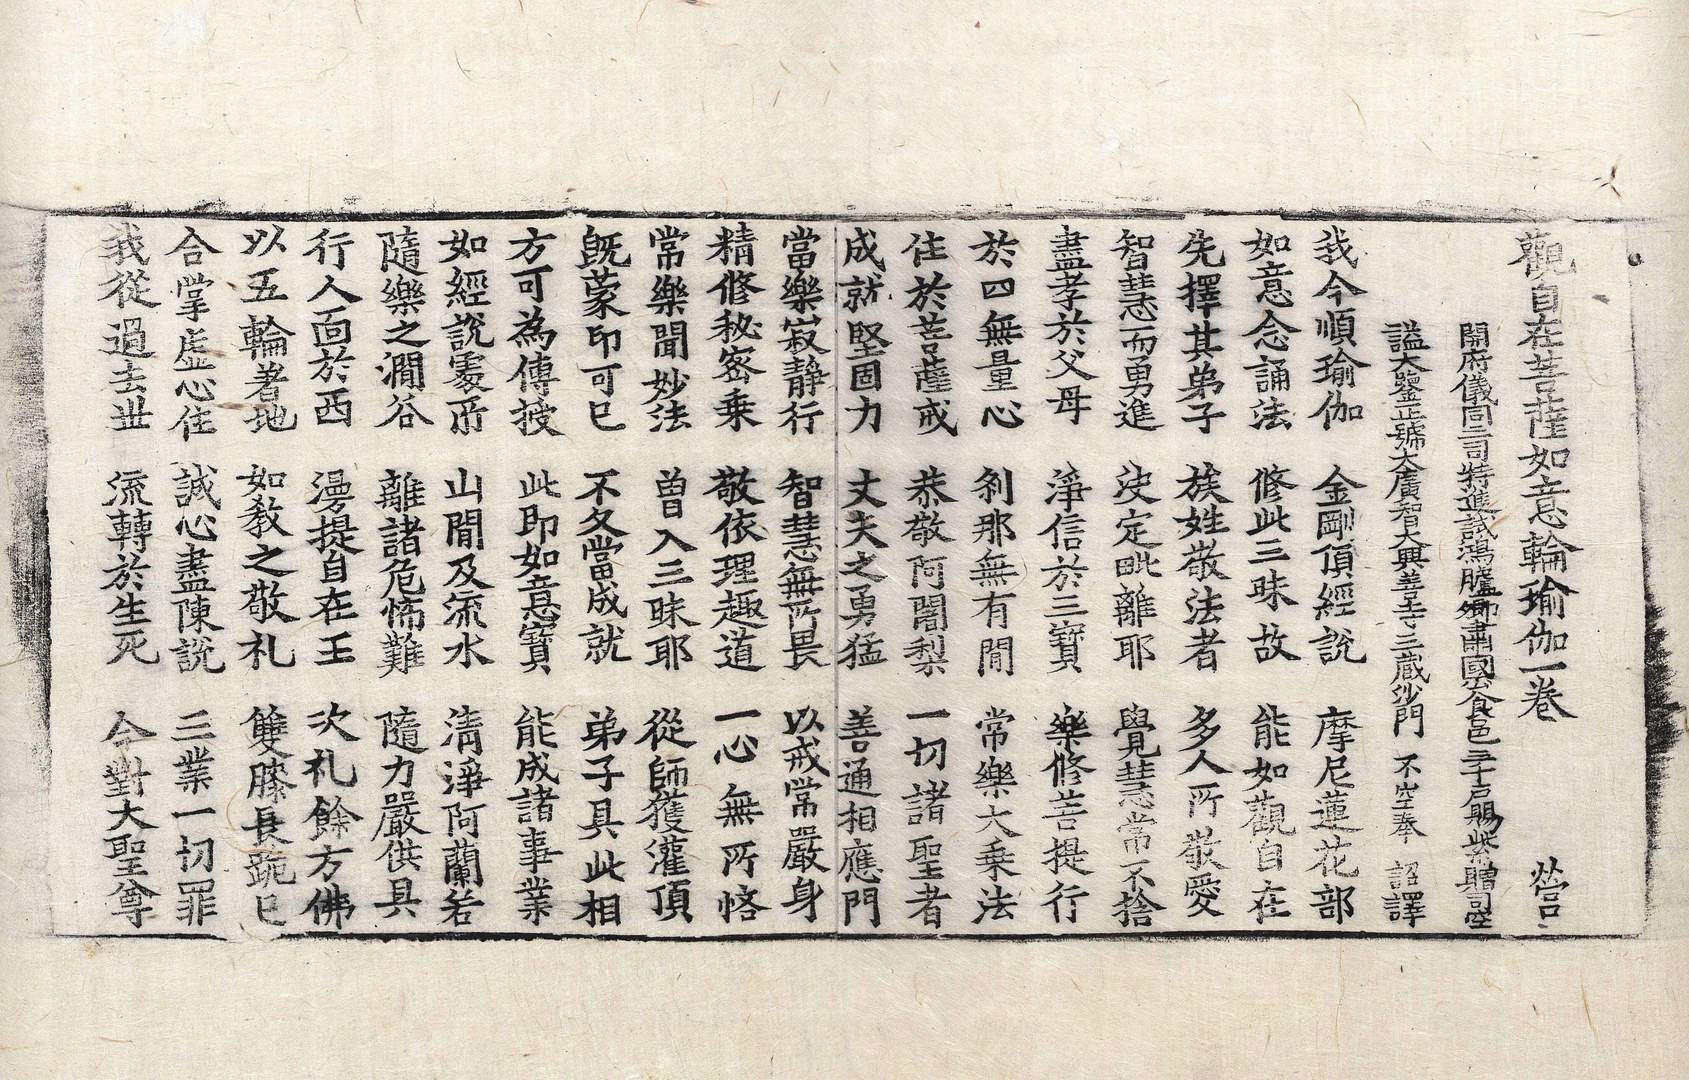 觀自在菩薩如意輪瑜伽一卷 營
開府儀同三司特進試鴻臚卿肅國公食邑三千戶賜紫贈司空
謚大鑒正號大廣智大興善寺三藏沙門 不空奉 詔譯
我今順瑜伽 金剛頂經說 摩尼蓮花部
如意念誦法 修此三昧故 能如觀自在
先擇其弟子 族姓敬法者 多人所敬愛
智慧而勇進 決定毗離耶 覺慧常不捨
盡孝於父母 淨信於三寶 樂修菩提行
於四無量心 刹那無有間 常樂大乘法
住於菩薩戒 恭敬阿闍梨 一切諸聖者
成就堅固力 丈夫之勇猛 善通相應門
當樂寂靜行 智慧無所畏 以戒常嚴身
精修秘密乘 敬依理趣道 一心無所悋
常樂聞妙法 曾入三昧耶 從師獲灌頂
旣蒙印可已 不久當成就 弟子具此相
方可為傳授 此即如意寶 能成諸事業
如經說處所 山間及流水 清淨阿蘭若
隨樂之澗谷 離諸危怖難 隨力嚴供具
行人面於西 湯提自在王 次礼餘方佛
以五輪著地 如教之敬礼 雙膝長跪已
合掌虛心住 誠心盡陳說 三業一切罪
我從過去世 流轉於生死 今對大聖尊